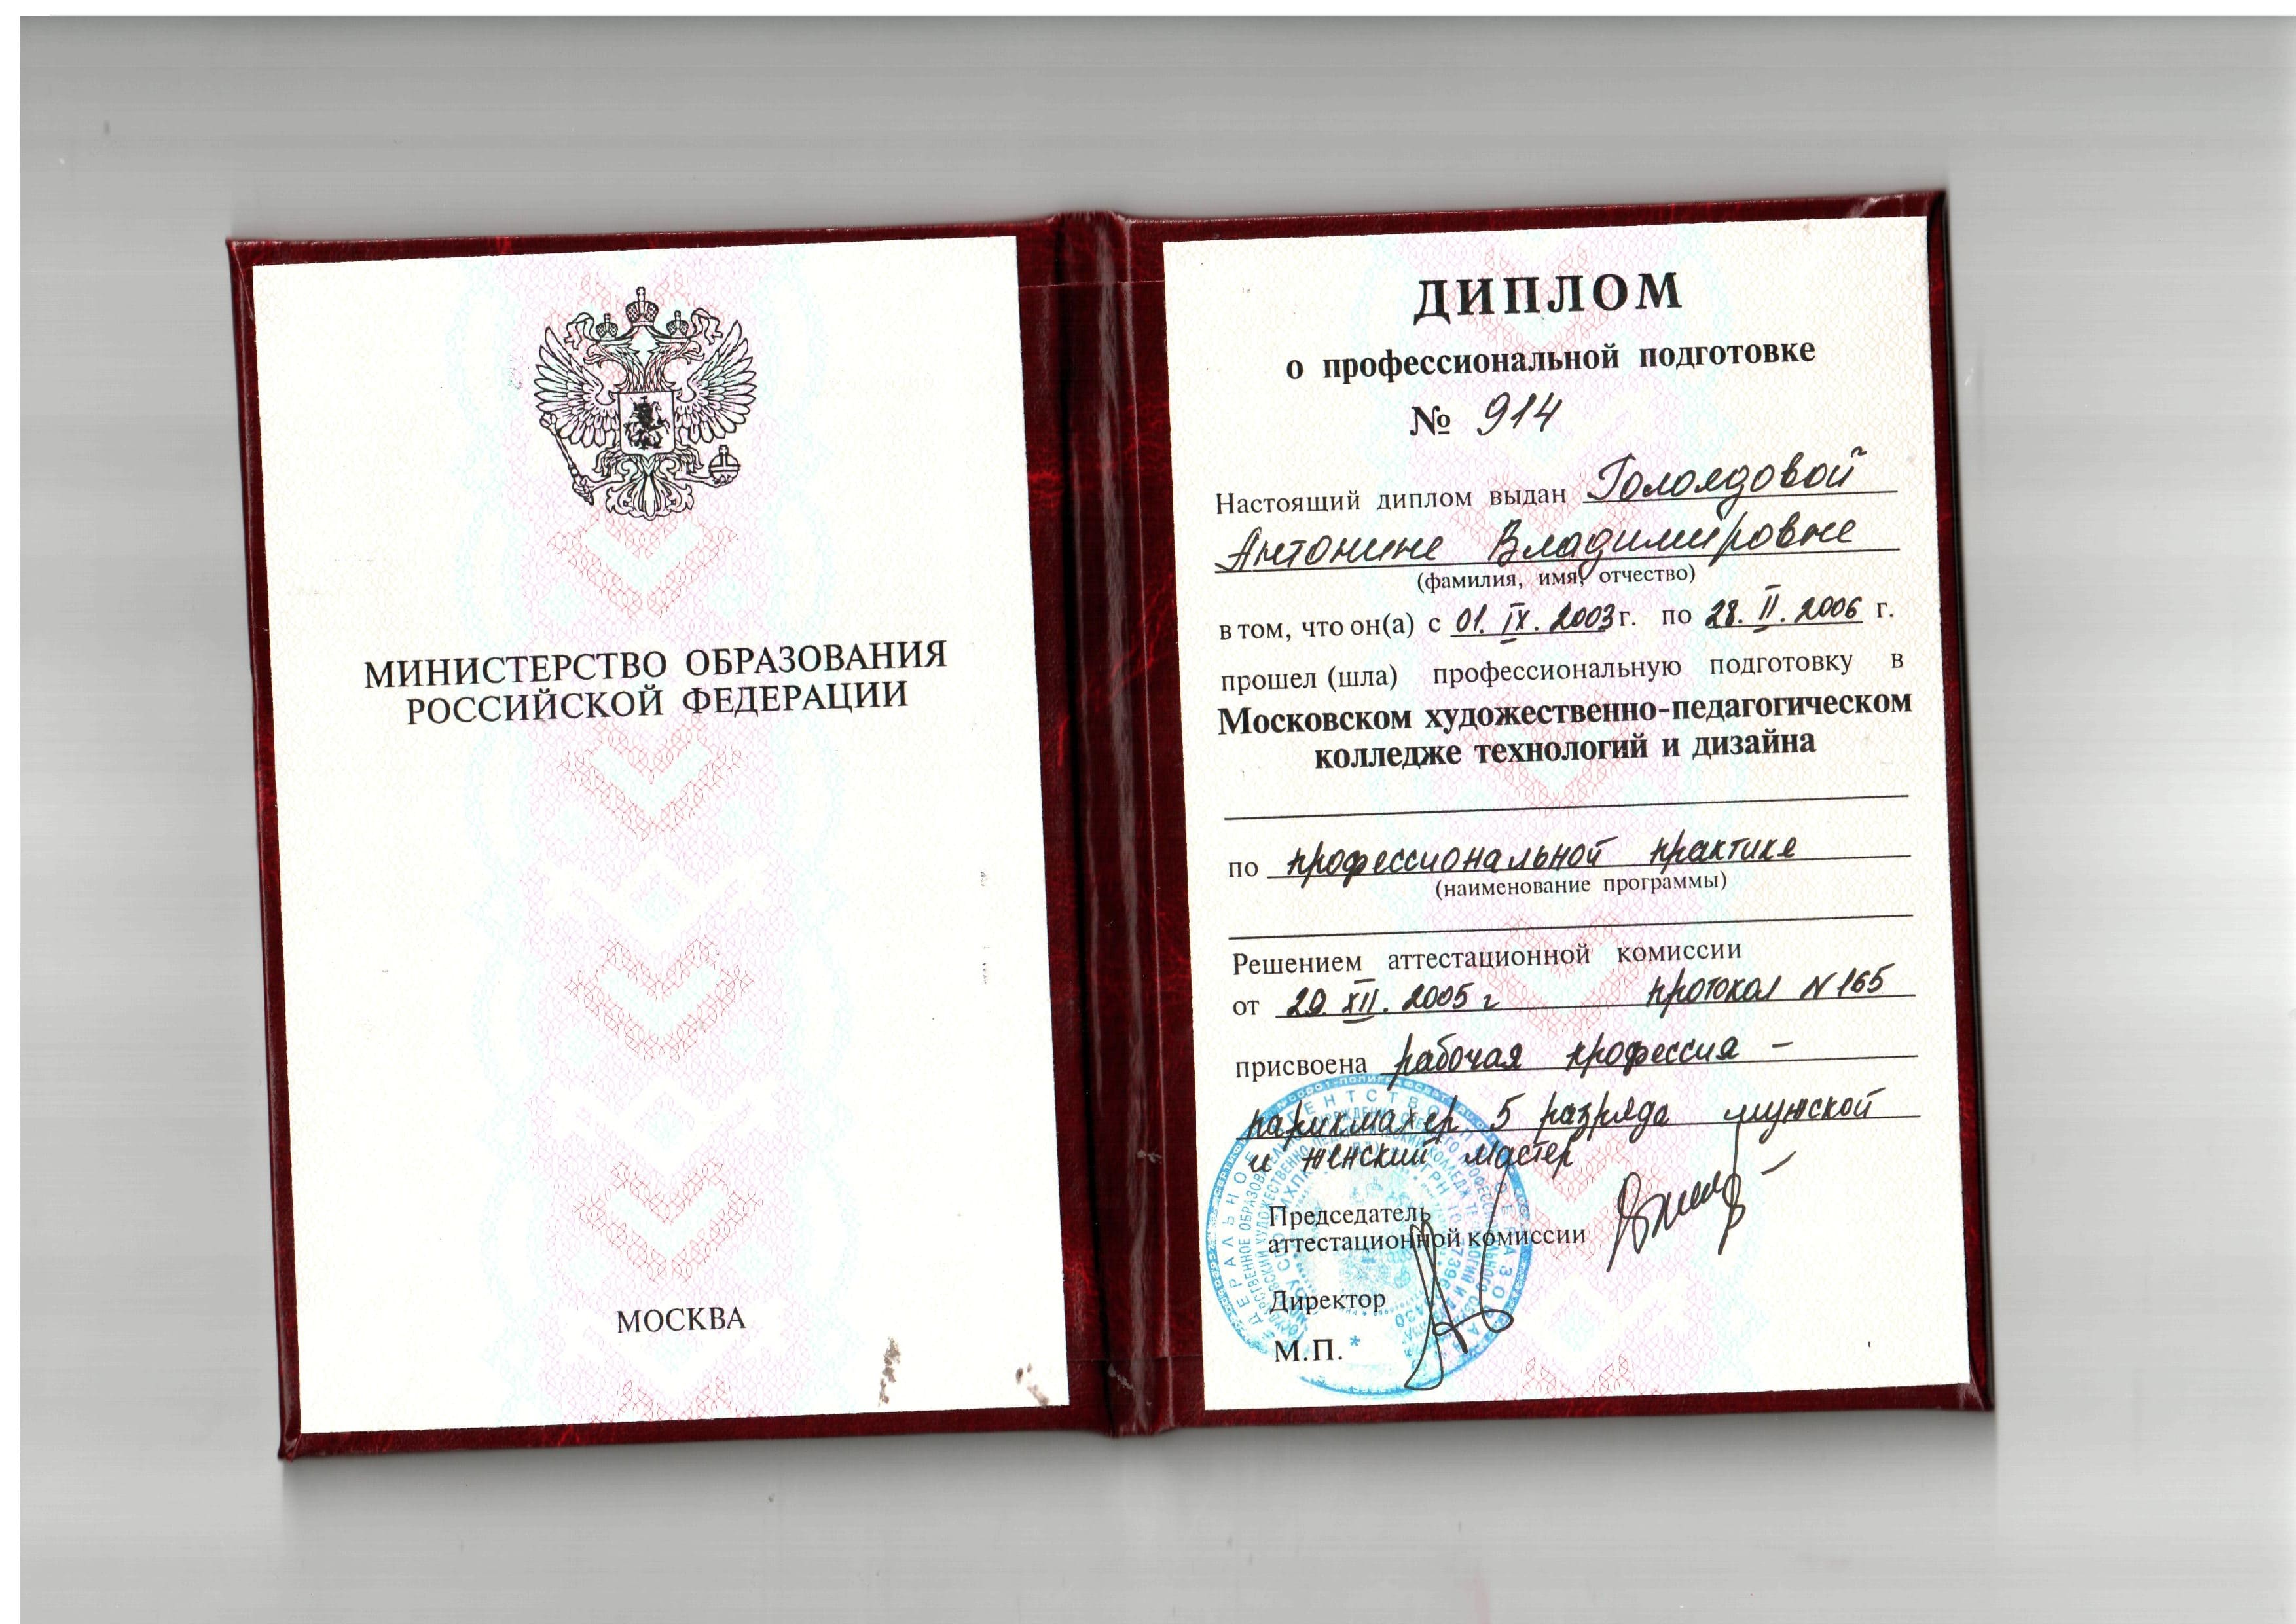 МИНИСТЕРСТВО ОБРАЗОВАНИЯ
РОССИЙСКОЙ ФЕДЕРАЦИИ
МОСКВА
ДИПЛОМ
о профессиональной подготовке
№ 914
Настоящий диплом выдан Голоядовой
Антонине Владимировне
(фамилия, имя, отчество)
в том, что он(а) с 01. IX. 2003 г. по 28. II. 2006 г.
прошел (шла) профессиональную подготовку в
Московском художественно-педагогическом
колледже технологий и дизайна
по профессиональной практике
(наименование программы)
Решением аттестационной комиссии
от 29. XII. 2005 г протокол N 165
присвоена рабочая профессия -
парикмахер 5 разряда мужской
и женский мастер
Председатель
аттестационной комиссии
Директор
М.П.